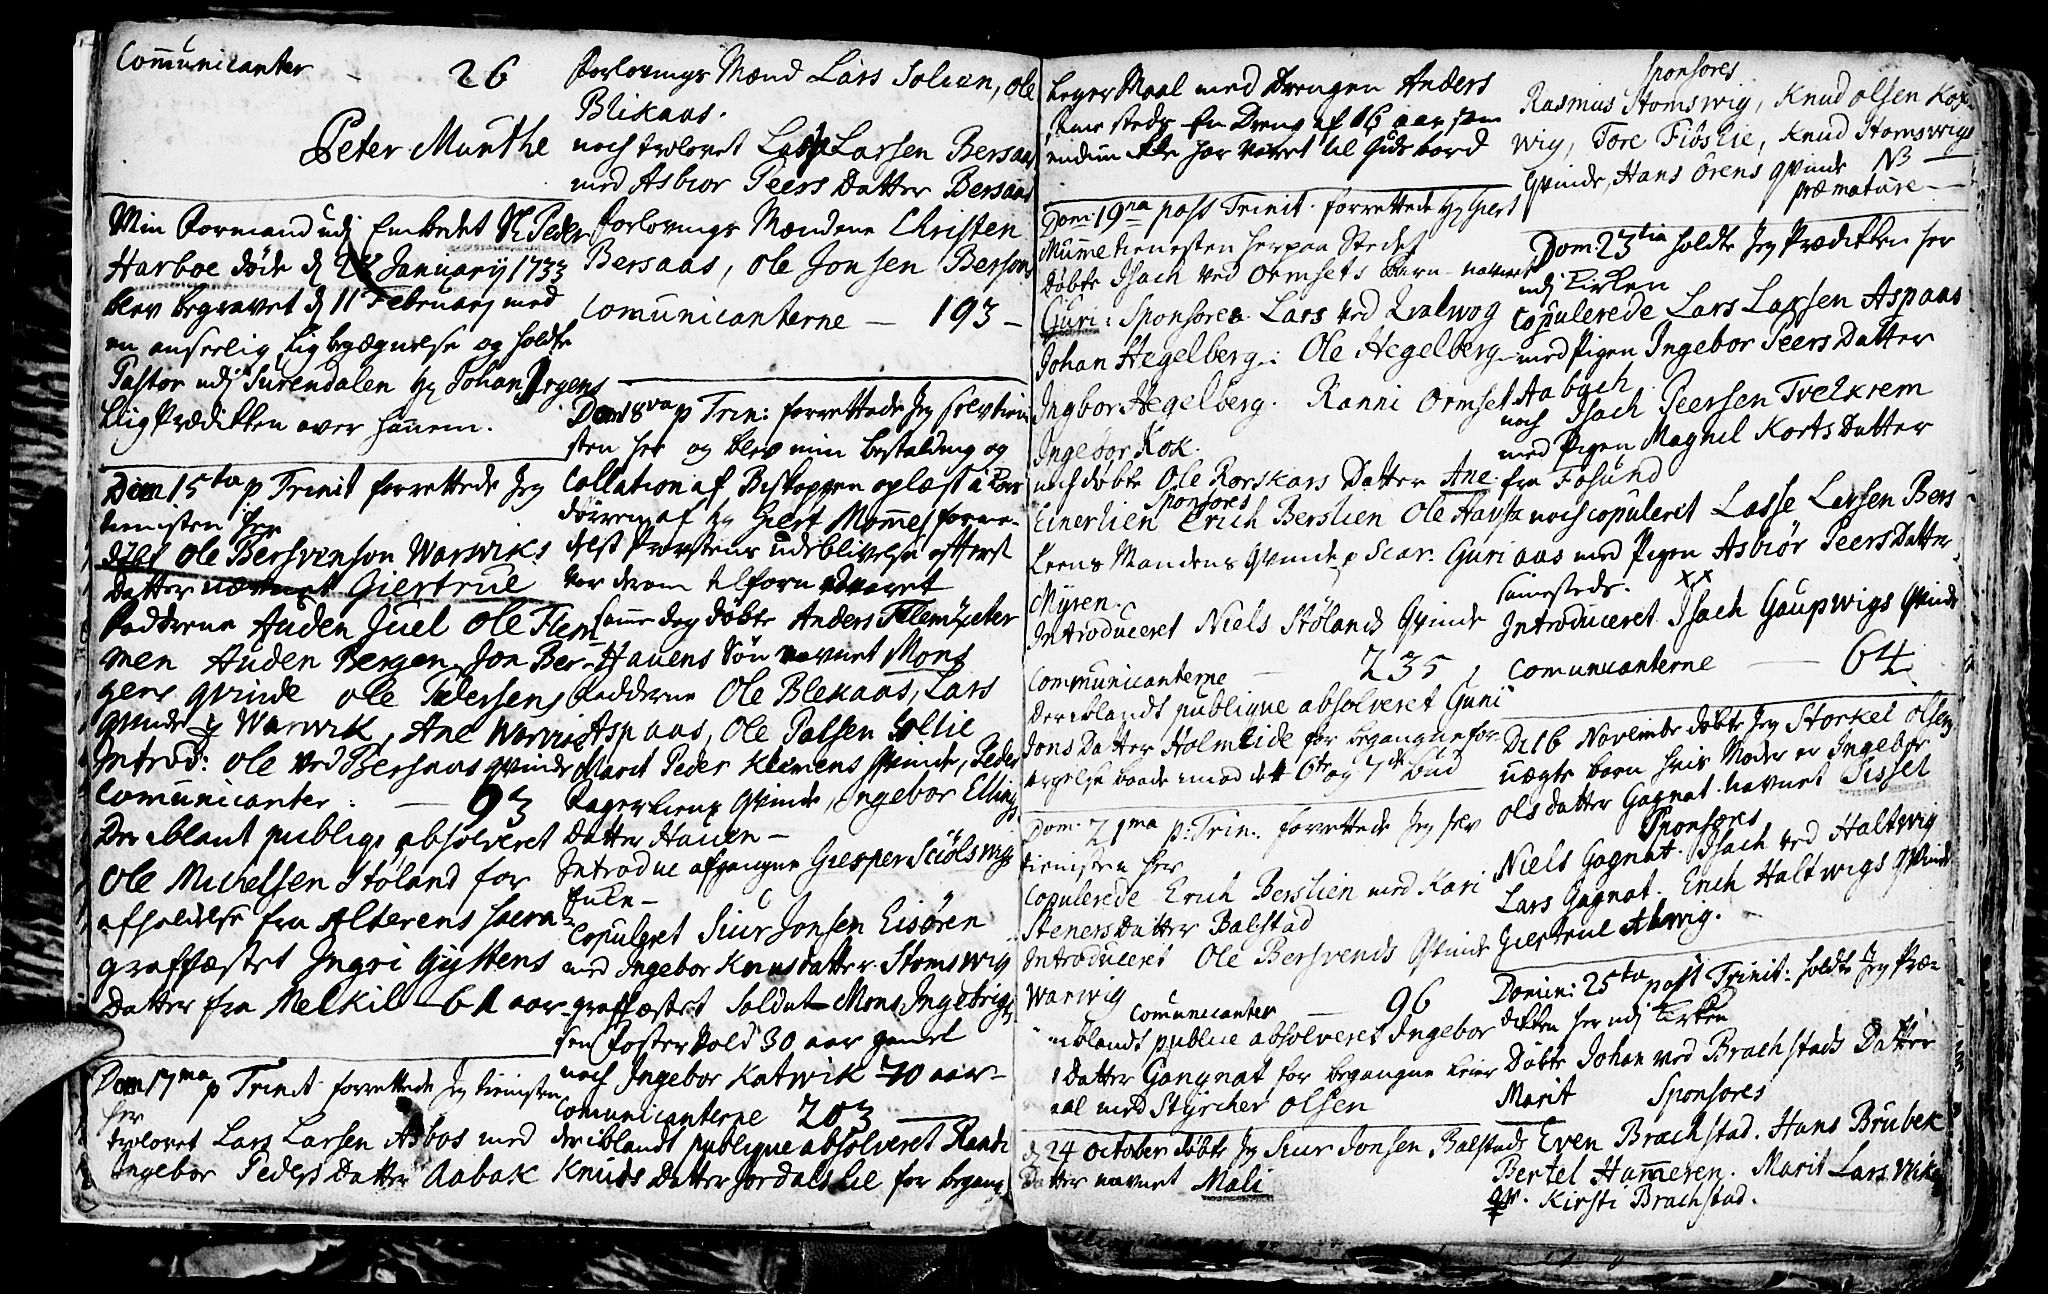 Communicanter - 26
Peter Munthe
Min Formand udj Embedet Hr Peder
Harboe døde d 28 Januarij 1733
blev begravet d 11 Februarj med
en anseelig Ligbegægnelse og holdte
Pastor udj Surendalen Hr Johan Irgens
Liig Prædikken over hannem.
Dom 15ta p Trinit forrettede Jeg
tienisten her
døbt Ole Bersvensøn Warwiks
Datter næfnet Giertrue
Fadderne Auden Juel Ole Flem
men Auden Bergen, Jon Ber-
gens qvinde Ole Pedersens
qvinde Warwik, Ane Warvik
Introd: Ole ved Bersaas qvinde
Communicanter: — 93
Der iblant publiqe absolveret
Ole Michelsen Støland for
afholdelse fra Alterens sacra-
graffæstet Ingri Gystens
Datter fra Melkil - 61 aar
Dom 17ma p Trinit forrettede Jeg tienisten
her
trolovet Lars Larsen Asbos med
Ingebor Peders Datter Aabak
Forlovings Mænd Lars Solien, Ole
Blikaas.
noch trolovet Lasse Larsen Bersaas
med Asbior Peers Datter Bersaas
Forlovings Mændene Christen
Bersaas, Ole Jonsen Bersaas
Comunicanterne — 193 -
Dom 18va p Trin: forrettede Jeg tien
sten her og blev min bestalding og
Collation af Biskoppen oplæst i Kor
dørren af Hr Giert Mommes forme-
delst Provstens udeblivelse efterat
var derom tilforn advaret
samme dag døbte Anders Flemsæter
Hauens Søn navnet Mons
Fadderne Ole Blekaas, Lars
Aspaas, Ole Palsen Sollie
Marit Peder Klemens Qvinde, Peder
Fagerliens Qvinde, Ingebor Ellings
Datter Hauen —
Introduc afgangne Giesper Sciølswigs
Enke —
Copuleret Siur Jonsen Eisøren
med Ingebor Knus datter Stomswig
graffæstet Soldat Mons Ingebrigt
sen Fosterwold 30 aar gamel
noch Ingebor Katwik 70 aar —
Comunicanterne 203 —
der iblandt publique absolveret Randi
Knuds Datter Jordalslie for begang
Leyer Maal med Drengen Anders
samesteds En Dreng af 16 aar som
endnu ikke har været til Guds bord
Dom: 19na post Trinit. forrettede Hr Giert
Mumme tienesten herpaa Stedet
døbte Isach ved Ormsets barn navnet
Guri: Sponsores Lars ved Qvalwog
Johan Hegelberg: Ole Hegelberg
Ingbor Hegelberg. Ranni Ormset
Ingebor Kok.
noch døbte Ole Rorskars Datter Ane
Sponsores
Einerlien Erich Berslien Ole Hausta
Leens Mandens Qvinde, Scar. Guri
Myren.
Introduceret Niels Stølands Qvinde
Communicanterne — 235,
Der iblandt publique absolveret Guni
Jons Datter Holmeide for begangne for-
argelse baade imod det 6te og 7de bud
Dom. 21ma p: Trin: forrettede Jeg selv
tienisten her
Copulerede Erich Berslien med Kari
Steners Datter Balstad
Introduceret Ole Bersvends Qvinde
Warwig
Comunicanter — 96
iblandt publice absolveret Ingebor
s Datter Gangnat for begangne Leier
aal med Styrcher Olsen
d 24 October døbte Jeg Siur Jonsen Balstads
Datter navnet Mali
Sponsores
Rasmus Stomswig, Knud Olsen Kax-
wig, Tore Fiøslie, Knud Stomswigs
Qvinde, Hans Ørens qvinde NB —
præmature —
Dom: 23tia holdte Jeg Prædikken her
udj Kirken
Copulerede Lars Larsen Aspaas
med Pigen Ingebor Peers Datter
Aabach
noch Isach Peersen Tvelkrem
med Pigen Magnil Korts Datter
fra Fosund
noch copuleret Lasse Larsen Bers
aas med Pigen Asbiør Peers Datter
samesteds. xx
Introduceret Isach Gaupwigs Qvinde
Comunicanterne — 64
D 16 November døbte Jeg Storkel Olsens
uægte barn hvis Moder er Ingebor
Ols datter Gagnat navnet Sissel
Sponsores
Niels Gagnat. Isach ved Haltwig
Lars Gagnat. Erich Haltwigs Qvinde
Giertrue Alwig.
Domin: 25ta post Trinit: holdte Jeg Præ-
dikken her udj Kirken
Døbte Johan ved Brachstads Datter
Marit Sponsores
Even Brachstad. Hans Brubek
Bertel Hammeren. Marit Lars Wiks
qv. Kirsti Brachstad.